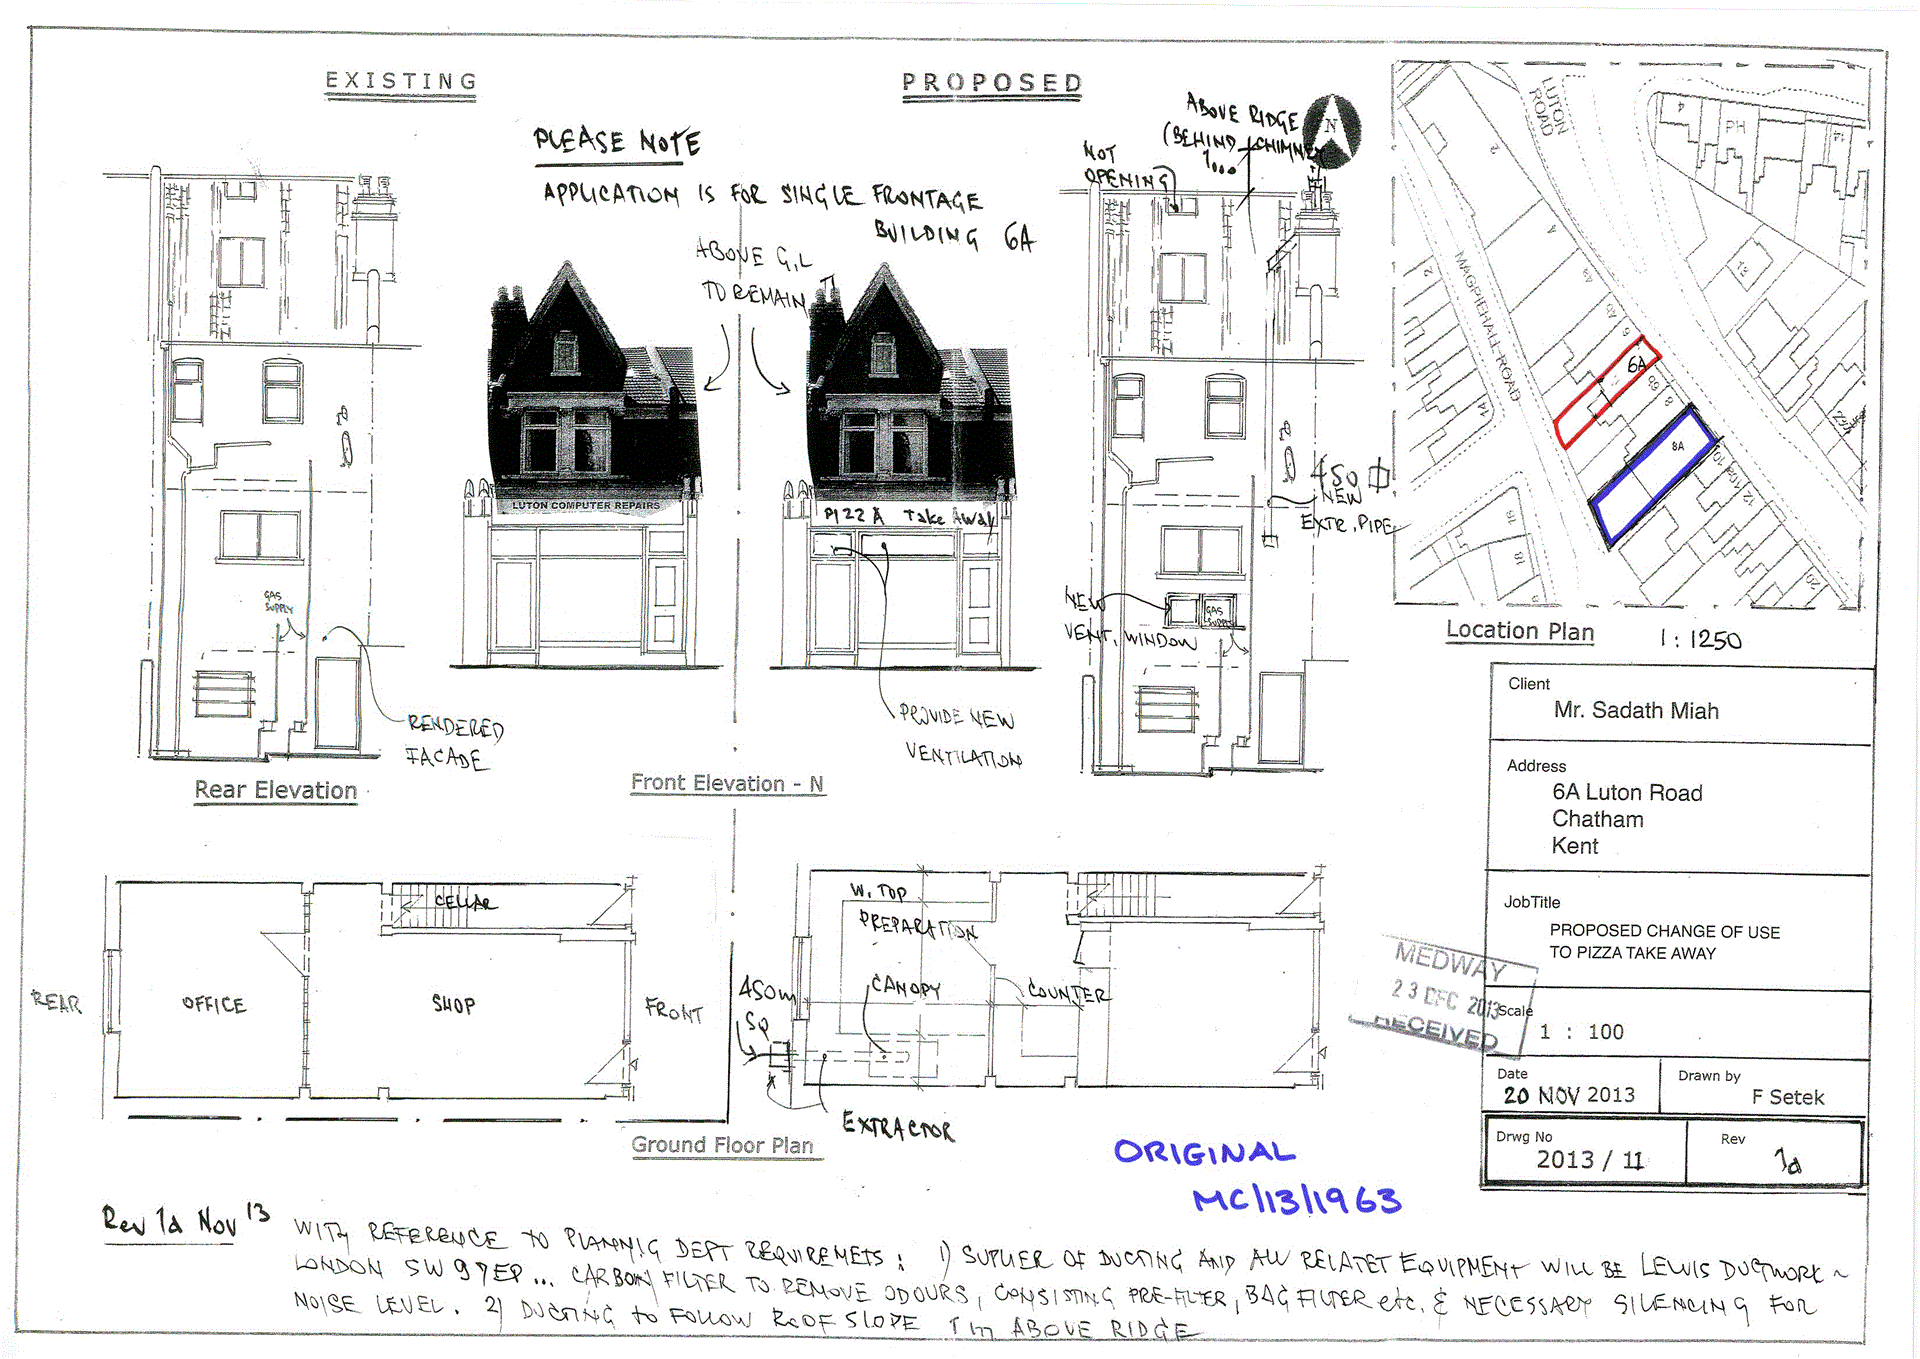 EXISTING
PROPOSED
PLEASE NOTE
APPLICATION IS FOR SINGLE FRONTAGE
BUILDING 6A
ABOVE G.L
TO REMAIN
ABOVE RIDGE
(BEHIND CHIMNEY
1...
NOT
OPENING
N
LUTON COMPUTER REPAIRS
PIZZA Take Away
450
NEW
EXTR. PIPE
NEW
VENT. WINDOW
GAS
SUPPLY
GAS
SUPPLY
RENDERED
FACADE
PROVIDE NEW
VENTILATION
Rear Elevation
Front Elevation - N
LUTON
ROAD
PH
MAGPIEHALL ROAD
6A
8A
2
4
4
14
12
2
14
6
8
16
18
20
Location Plan
1:1250
Client
Mr. Sadath Miah
Address
6A Luton Road
Chatham
Kent
JobTitle
PROPOSED CHANGE OF USE
TO PIZZA TAKE AWAY
MEDWAY
23 DEC 2013
RECEIVED
Scale
1 : 100
Date
20 NOV 2013
Drawn by
F Setek
Drwg No
2013 / 11
Rev
1d
REAR
OFFICE
SHOP
CELLAR
FRONT
W. TOP
PREPARATION
CANOPY
COUNTER
450m
SQ
EXTRACTOR
Ground Floor Plan
ORIGINAL
MC/13/1963
Rev 1d Nov 13
WITH REFERENCE TO PLANNIG DEPT REQUIREMETS: 1) SUPLIER OF DUCTING AND ALL RELATET EQUIPMENT WILL BE LEWIS DUCTWORK ~
LONDON SW9 7EP... CARBON FILTER TO REMOVE ODOURS, CONSISTING PRE-FILTER, BAG FILTER etc. & NECESSARY SILENCING FOR
NOISE LEVEL. 2) DUCTING to FOLLOW ROOF SLOPE 1m ABOVE RIDGE